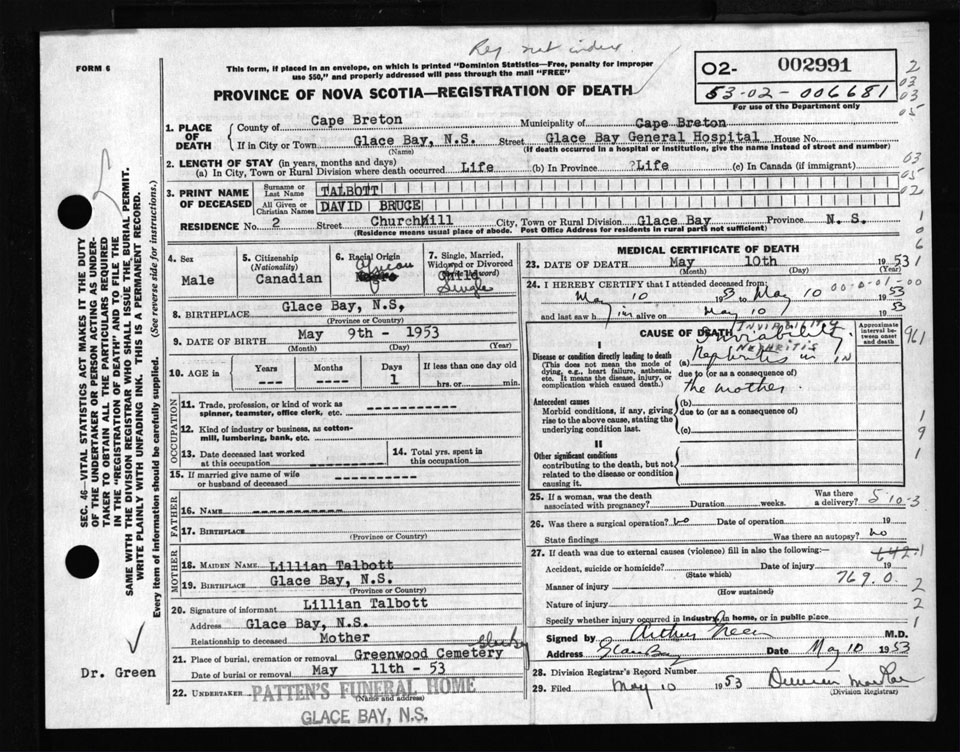 Reg not index
FORM 6
This form, if placed in an envelope, on which is printed "Dominion Statistics—Free, penalty for improper
use $50," and properly addressed will pass through the mail "FREE"
PROVINCE OF NOVA SCOTIA—REGISTRATION OF DEATH
02- 002991
53-02-006681
For use of the Department only
2
03
03
05
03
05
02
1. PLACE OF DEATH
County of Cape Breton Municipality of Cape Breton
If in City or Town Glace Bay, N.S. Street Glace Bay General Hospital House No.
(Name) (If death occurred in a hospital or institution, give the name instead of street and number)
2. LENGTH OF STAY (in years, months and days)
(a) In City, Town or Rural Division where death occurred Life (b) In Province ?Life (c) In Canada (if immigrant)
3. PRINT NAME OF DECEASED
Surname or Last Name TALBOTT
All Given or Christian Names DAVID BRUCE
RESIDENCE No. 2 Street Churchill City, Town or Rural Division Glace Bay Province N. S.
(Residence means usual place of abode. Post Office Address for residents in rural parts not sufficient)
4. Sex
Male
5. Citizenship
(Nationality)
Canadian
6. Racial Origin
African
Negro
7. Single, Married,
Widowed or Divorced
(Write the word)
Child
Single
8. BIRTHPLACE Glace Bay, N.S,
(Province or Country)
9. DATE OF BIRTH May 9th - 1953
(Month) (Day) (Year)
10. AGE in
Years ---
Months ----
Days 1
If less than one day old
hrs. or min.
OCCUPATION
11. Trade, profession, or kind of work as
spinner, teamster, office clerk, etc. ------------
12. Kind of industry or business, as cotton-
mill, lumbering, bank, etc. ------------
13. Date deceased last worked
at this occupation ------------
14. Total yrs. spent in
this occupation
15. If married give name of wife
or husband of deceased ------------
FATHER
16. Name ------------
17. Birthplace ------------
(Province or Country)
MOTHER
18. Maiden Name Lillian Talbott
19. Birthplace Glace Bay, N.S.
(Province or Country)
20. Signature of informant Lillian Talbott
Address Glace Bay, N.S.
Relationship to deceased Mother
21. Place of burial, cremation or removal Greenwood Cemetery Glace Bay
Date of burial or removal May 11th - 53
22. Undertaker PATTEN'S FUNERAL HOME
(Name and address)
GLACE BAY, N.S.
MEDICAL CERTIFICATE OF DEATH
23. DATE OF DEATH May 10th 1953
(Month) (Day) (Year)
1
0
6
1
24. I HEREBY CERTIFY that I attended deceased from:
May 10 1953 to May 10 1953
00-0-01-00
and last saw him alive on May 10 1953
CAUSE OF DEATH
Approximate
interval be-
tween onset
and death
961
I
Disease or condition directly leading to death
(This does not mean the mode of
dying, e.g., heart failure, asthenia,
etc. It means the disease, injury, or
complication which caused death.)
INVIABILITY
Inviability
(a) NEPHRITIS IN
Nephritis in
due to (or as a consequence of)
the mother.
Antecedent causes
Morbid conditions, if any, giving
rise to the above cause, stating the
underlying condition last.
(b)
due to (or as a consequence of)
(c)
1
9
1
II
Other significant conditions
contributing to the death, but not
related to the disease or condition
causing it.
25. If a woman, was the death
associated with pregnancy? Duration weeks. Was there
a delivery?
5 10-3
26. Was there a surgical operation? No Date of operation 19
State findings Was there an autopsy? No
27. If death was due to external causes (violence) fill in also the following:
642-1
Accident, suicide or homicide? Date of injury 19
(State which)
769.0
Manner of injury
(How sustained)
2
Nature of injury
2
Specify whether injury occurred in industry, in home, or in public place
1
Signed by Arthur Green M.D.
Address Glace Bay Date May 10 1953
28. Division Registrar's Record Number
29. Filed May 10 1953 Duncan
(Division Registrar)
SEC. 46—VITAL STATISTICS ACT MAKES IT THE DUTY
OF THE UNDERTAKER OR PERSON ACTING AS UNDER-
TAKER TO OBTAIN ALL THE PARTICULARS REQUIRED
IN THE "REGISTRATION OF DEATH" AND TO FILE THE
SAME WITH THE DIVISION REGISTRAR WHO SHALL ISSUE THE BURIAL PERMIT.
WRITE PLAINLY WITH UNFADING INK. THIS IS A PERMANENT RECORD.
Every item of information should be carefully supplied. (See reverse side for instructions.)
Dr. Green